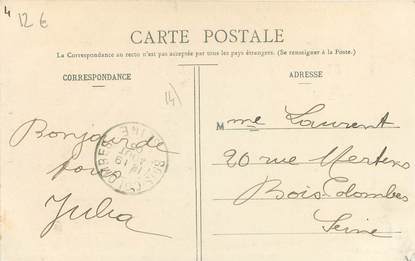 4
12 €
CARTE POSTALE
La Correspondance au recto n'est pas acceptée par tous les pays étrangers. (Se renseigner à la Poste.)
CORRESPONDANCE
ADRESSE
14)
Bonjour de
tous
Julia
Mme Laurent
20 rue Mertens
Bois-Colombes
Seine